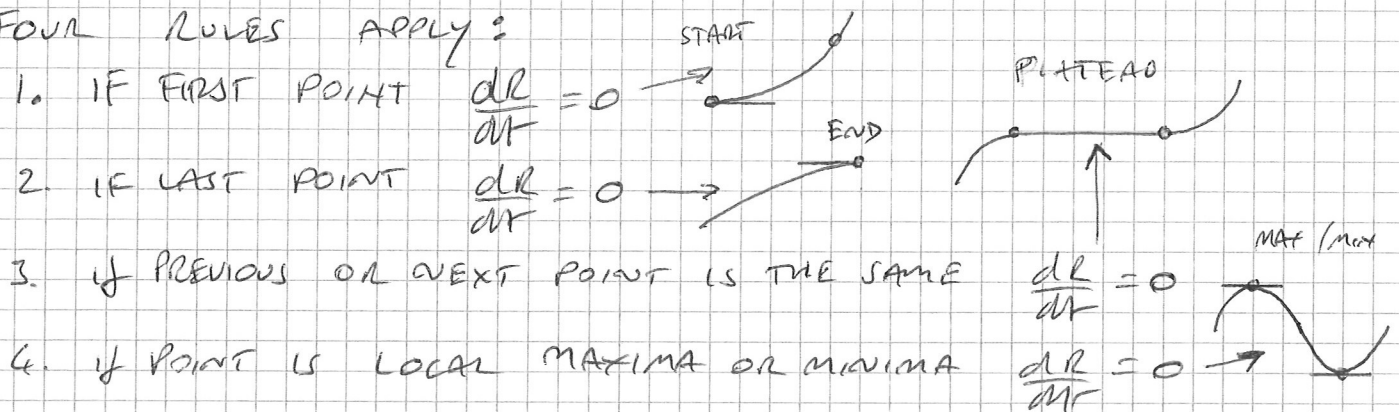 FOUR RULES APPLY:
START
1. IF FIRST POINT dR/dt = 0 →
PLATEAU
END
2. IF LAST POINT dR/dt = 0 →
MAX / MIN
3. if PREVIOUS OR NEXT POINT IS THE SAME dR/dt = 0
4. if POINT IS LOCAL MAXIMA OR MINIMA dR/dt = 0 →